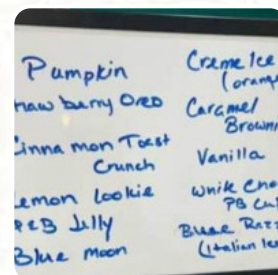 Pumpkin
rawberry Oreo
Cinnamon Toast
Crunch
Lemon Cookie
PB Jelly
Blue Moon
Creme Ice
(orang
Caramel
Brown
Vanilla
White Cho
PB Cu
Blue Razz
(Italian Ice